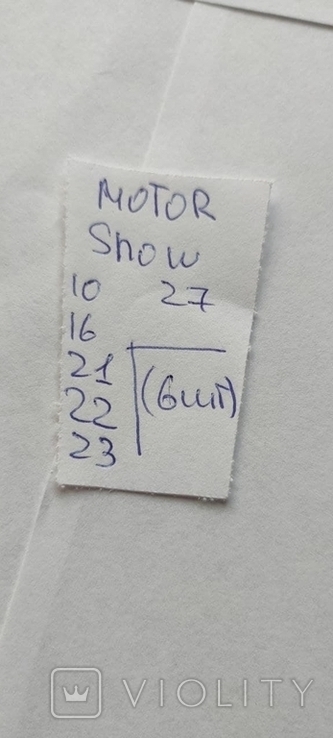 MOTOR
Show
10 27
16
21
22 (6шт)
23
VIOLITY